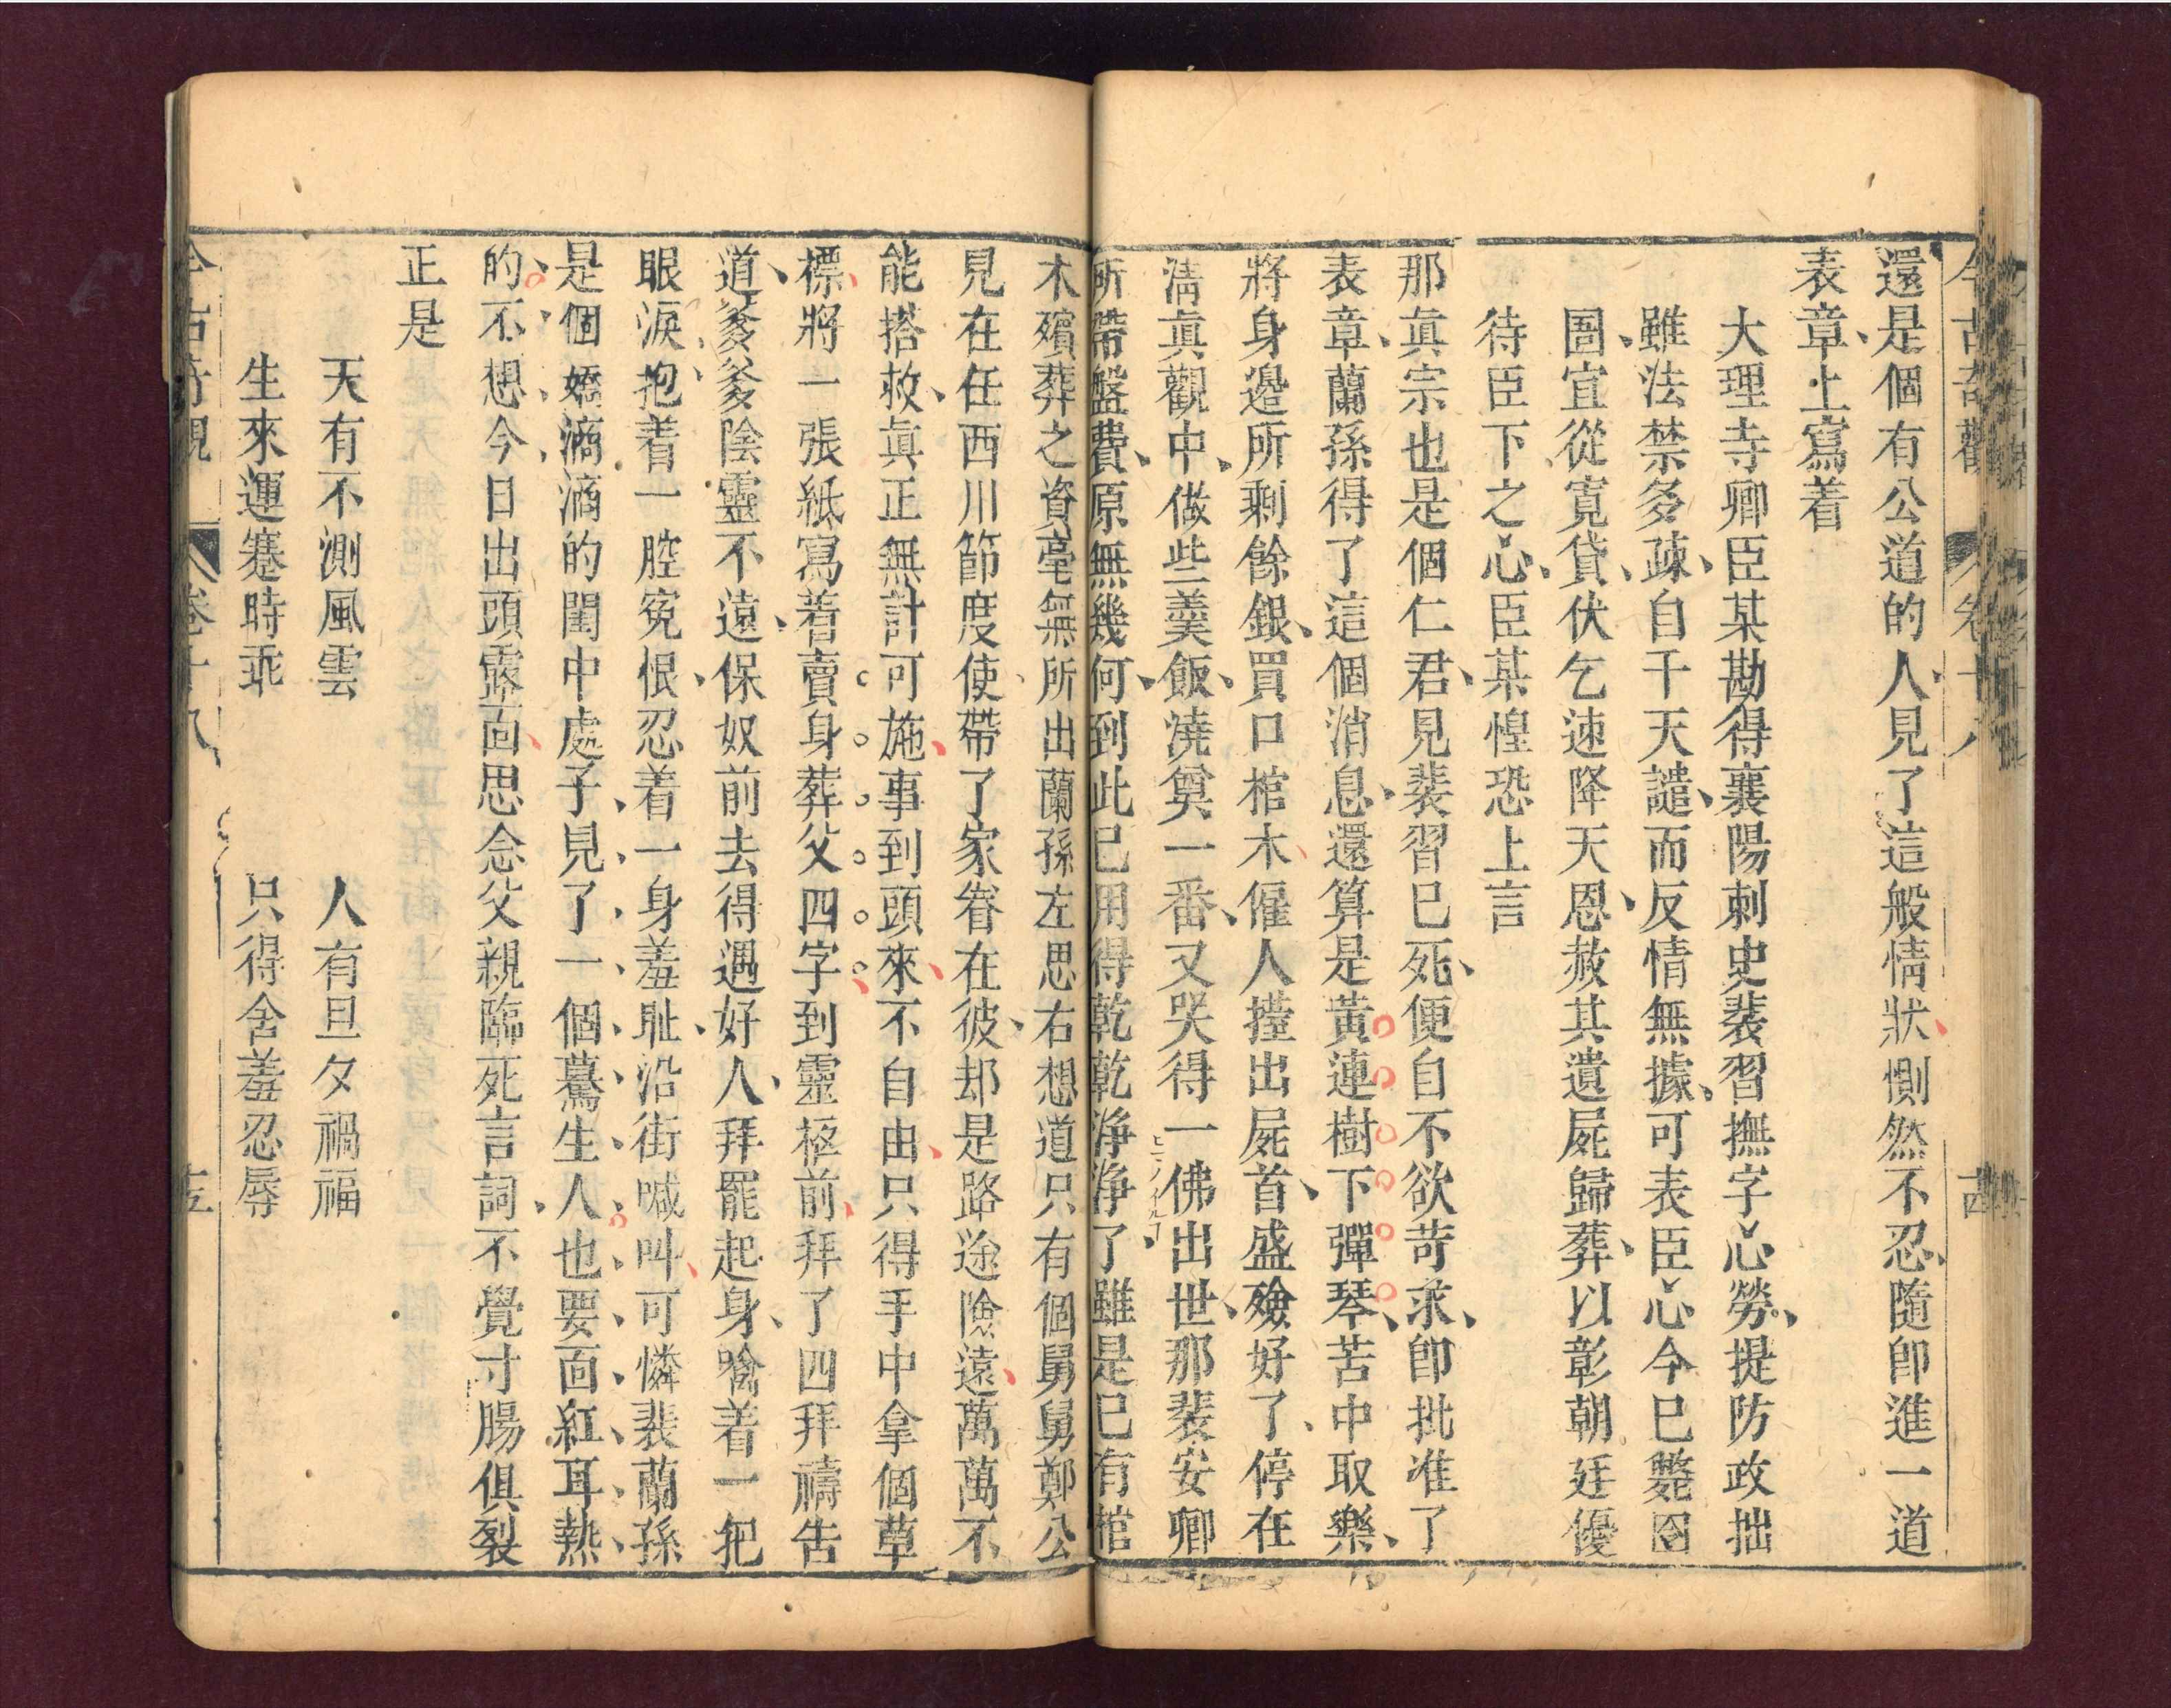 今古奇觀 卷十八 十四
還是個有公道的人見了這般情狀惻然不忍隨卽進一道
表章上寫着
大理寺卿臣某勘得襄陽刺史裴習撫字心勞提防政拙
雖法禁多疎自干天譴而反情無據可表臣心今巳斃囹
圄宜從寬貸伏乞速降天恩赦其遺屍歸葬以彰朝廷優
待臣下之心臣某惶恐上言
那眞宗也是個仁君見裴習巳死便自不欲苛求卽批准了
表章蘭孫得了這個消息還算是黃連樹下彈琴苦中取樂
將身邉所剩餘銀買口棺木僱人擡出屍首盛殮好了停在
淸眞觀中做些羹飯澆奠一番又哭得一佛出世那裴安卿
所帶盤費原無幾何到此巳用得乾乾淨淨了雖是巳有棺
木殯葬之資毫無所出蘭孫左思右想道只有個舅舅鄭公
見在任西川節度使帶了家眷在彼却是路途險遠萬萬不
能搭救眞正無計可施事到頭來不自由只得手中拿個草
標將一張紙寫着賣身葬父四字到靈柩前拜了四拜禱告
道爹爹陰靈不遠保奴前去得遇好人拜罷起身噙着一把
眼淚抱着一腔寃恨忍着一身羞耻沿街喊叫可憐裴蘭孫
是個嬌滴滴的閨中處子見了一個驀生人也要面紅耳熱
的不想今日出頭露面思念父親臨死言詞不覺寸腸俱裂
正是
天有不測風雲 人有旦夕禍福
生來運蹇時乖 只得含羞忍辱
今古奇觀 卷十八 十五